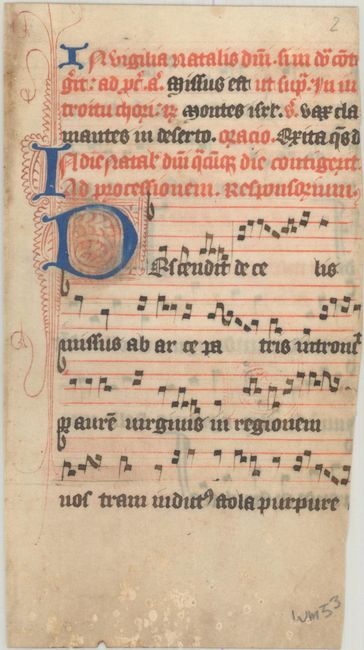 2
In vigilia natalis dñi. si in dõ cōti
g̃it: ad p̃c. a. Missus est ut sup̃. In in
troitu chori: R̃ Montes isrł. V̊. Vax cla
mantes in deserto. oracio. Exita q̃s d
In die natał dñi q̃cũqȝ die contigerit
Ad processionem. Responsorium.
Descendit de ce lis
missus ab ar ce pa tris introiit
p aurē virginis in regionem
nos tram indutꝰ stola purpure
lum 53